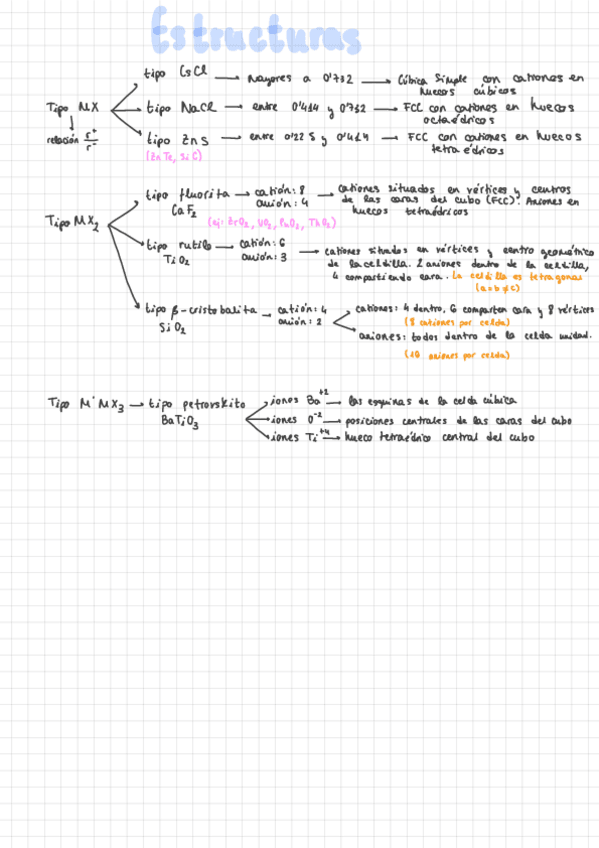 Estructuras
tipo CsCl → Mayores a 0'732 → Cúbica simple con cationes en
huecos cúbicos
Tipo MX → tipo NaCl → entre 0'414 y 0'732 → FCC con cationes en huecos
octaédricos
relación r⁺/r⁻
tipo ZnS → entre 0'225 y 0'414 → FCC con cationes en huecos
tetraédricos
(ZnTe, SiC)
tipo fluorita → catión: 8 → cationes situados en vértices y centros
CaF₂ anión: 4 de las caras del cubo (FCC). Aniones en
huecos tetraédricos
(ej: ZrO₂, UO₂, PuO₂, ThO₂)
Tipo MX₂
tipo rutilo → catión: 6 → cationes situados en vértices y centro geométrico
TiO₂ anión: 3 de la celdilla. 2 aniones dentro de la celdilla,
4 compartiendo cara. La celdilla es tetragonal
(a=b≠c)
tipo β-cristobalita → catión: 4 → cationes: 4 dentro, 6 comparten cara y 8 vértices
SiO₂ anión: 2 (8 cationes por celda)
aniones: todos dentro de la celda unidad.
iones Ba⁺² → las esquinas de la celda cúbica
Tipo M'MX₃ → tipo petrovskito
BaTiO₃ iones O⁻² → posiciones centrales de las caras del cubo
iones Ti⁺⁴ → hueco tetraédrico central del cubo